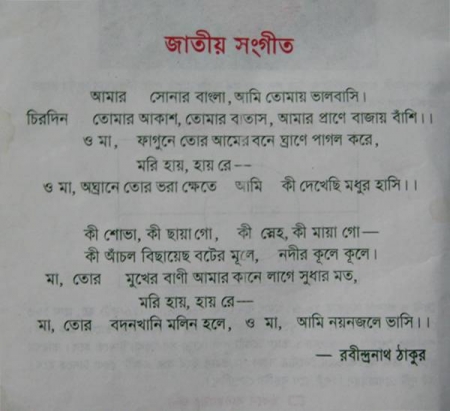 জাতীয় সংগীত
আমার সোনার বাংলা, আমি তোমায় ভালবাসি।
চিরদিন তোমার আকাশ, তোমার বাতাস, আমার প্রাণে বাজায় বাঁশি।।
ও মা, ফাগুনে তোর আমের বনে ঘ্রাণে পাগল করে,
মরি হায়, হায় রে--
ও মা, অঘ্রানে তোর ভরা ক্ষেতে আমি কী দেখেছি মধুর হাসি।।
কী শোভা, কী ছায়া গো, কী স্নেহ, কী মায়া গো—
কী আঁচল বিছায়েছ বটের মূলে, নদীর কূলে কূলে।
মা, তোর মুখের বাণী আমার কানে লাগে সুধার মত,
মরি হায়, হায় রে—
মা, তোর বদনখানি মলিন হলে, ও মা, আমি নয়নজলে ভাসি।।
— রবীন্দ্রনাথ ঠাকুর